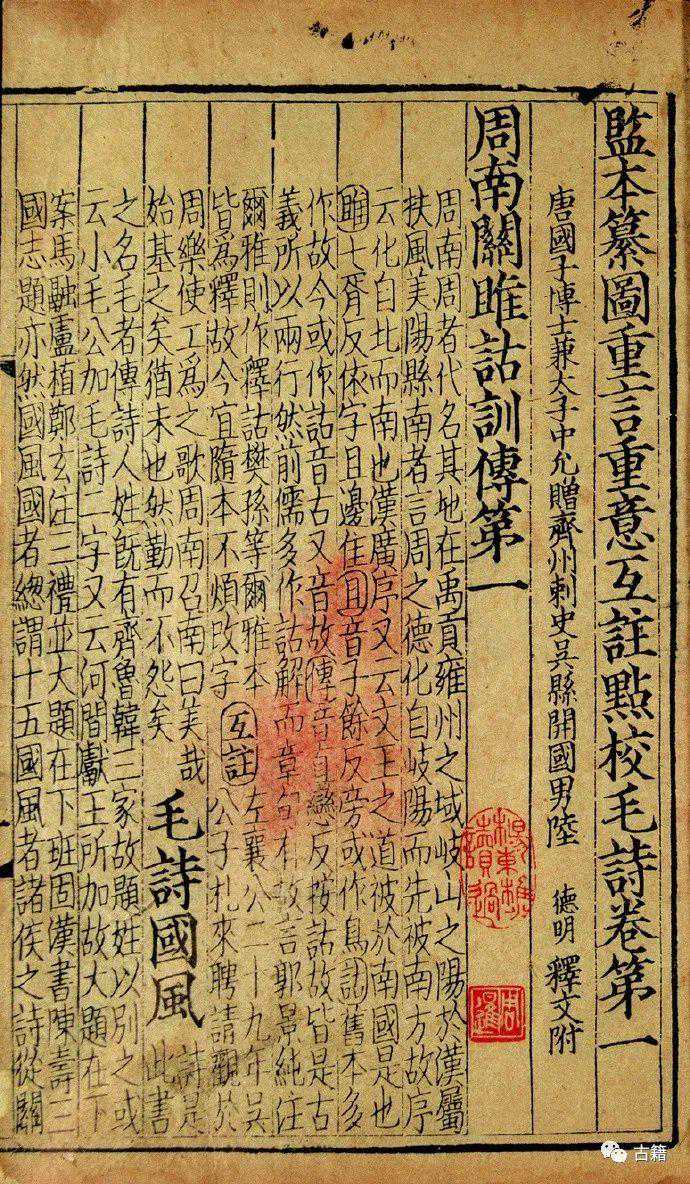 監本纂圖重言重意互註點校毛詩卷第一
唐國子博士兼太子中允贈齊州刺史吳縣開國男陸 德明 釋文附
周南關雎詁訓傳第一
周南周者代名其地在禹貢雍州之域岐山之陽於漢屬
扶風美陽縣南者言周之德化自岐陽而先被南方故序
云化自北而南也漢廣序又云文王之道被於南國是也
雎七胥反依字且邊隹且音子餘反旁或作鳥詁舊本多
作故今或作詁音古又音故傳音直戀反按詁故皆是古
義所以兩行然前儒多作詁解而章句有故言郭景純注
爾雅則作釋詁樊孫等爾雅本
皆爲釋故今宜隨本不煩改字
互註
左襄公二十九年吳
公子札來聘請觀於
周樂使工爲之歌周南召南曰美哉
始基之矣猶未也然勤而不怨矣
毛詩國風
詩是
此書
之名毛者傳詩人姓既有齊魯韓三家故題姓以別之或
云小毛公加毛詩二字又云河間獻王所加故大題在下
案馬融盧植鄭玄注三禮並大題在下班固漢書陳壽三
國志題亦然國風國者總謂十五國風者諸侯之詩從關
楊東樵
讀過
周暹
古籍